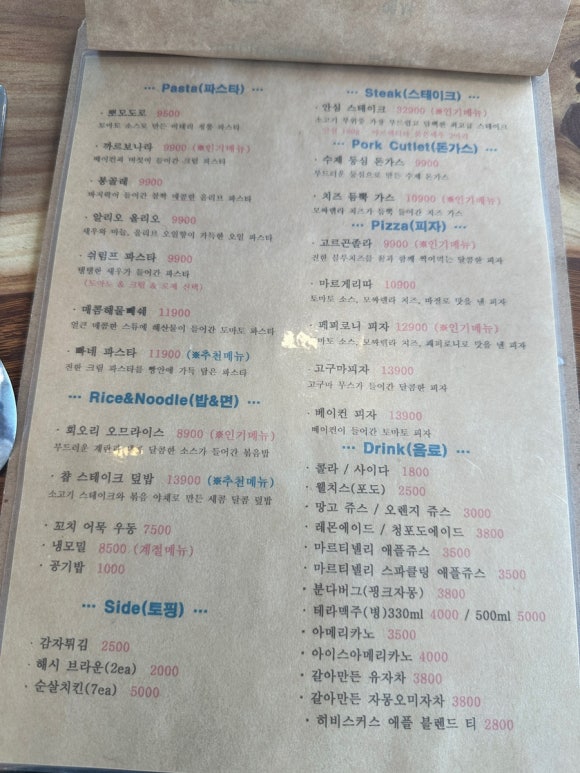 ··· Pasta(파스타) ···
· 뽀모도로 9500
토마토 소스로 만든 이태리 정통 파스타
· 까르보나라 9900 (※인기메뉴)
베이컨과 버섯이 들어간 크림 파스타
· 봉골레 9900
바지락이 들어간 살짝 매콤한 올리브 파스타
· 알리오 올리오 9900
새우와 마늘, 올리브 오일향이 가득한 오일 파스타
· 쉬림프 파스타 9900
탱탱한 새우가 들어간 파스타
(토마토 & 크림 & 로제 선택)
· 매콤해물빼쉐 11900
얼큰 매콤한 스튜에 해산물이 들어간 토마토 파스타
· 빠네 파스타 11900 (※추천메뉴)
진한 크림 파스타를 빵안에 가득 담은 파스타
··· Rice&Noodle(밥&면) ···
· 회오리 오므라이스 8900 (※인기메뉴)
부드러운 계란과 달콤한 소스가 들어간 볶음밥
· 찹 스테이크 덮밥 13900 (※추천메뉴)
소고기 스테이크와 볶음 야채로 만든 새콤 달콤 덮밥
· 꼬치 어묵 우동 7500
· 냉모밀 8500 (계절메뉴)
· 공기밥 1000
··· Side(토핑) ···
· 감자튀김 2500
· 해시 브라운(2ea) 2000
· 순살치킨(7ea) 5000
··· Steak(스테이크) ···
· 안심 스테이크 32900 (※인기메뉴)
소고기 부위중 가장 부드럽고 담백한 최고급 스테이크
안심 180g
··· Pork Cutlet(돈가스) ···
· 수제 등심 돈가스 9900
부드러운 등심으로 만든 수제 돈가스
· 치즈 듬뿍 가스 10900 (※인기메뉴)
모짜렐라 치즈가 듬뿍 들어간 치즈 가스
··· Pizza(피자) ···
· 고르곤졸라 9900 (※인기메뉴)
진한 블루치즈를 꿀과 함께 찍어먹는 달콤한 피자
· 마르게리따 10900
토마토 소스, 모짜렐라 치즈, 바질로 맛을 낸 피자
· 페피로니 피자 12900 (※인기메뉴)
토마토 소스, 모짜렐라 치즈, 페퍼로니로 맛을 낸 피자
· 고구마피자 13900
고구마 무스가 들어간 달콤한 피자
· 베이컨 피자 13900
베이컨이 들어간 토마토 피자
··· Drink(음료) ···
· 콜라 / 사이다 1800
· 웰치스(포도) 2500
· 망고 쥬스 / 오렌지 쥬스 3000
· 레몬에이드 / 청포도에이드 3800
· 마르티넬리 애플쥬스 3500
· 마르티넬리 스파클링 애플쥬스 3500
· 분다버그(핑크자몽) 3800
· 테라맥주(병)330ml 4000 / 500ml 5000
· 아메리카노 3500
· 아이스아메리카노 4000
· 갈아만든 유자차 3800
· 갈아만든 자몽오미자차 3800
· 히비스커스 애플 블렌드 티 2800